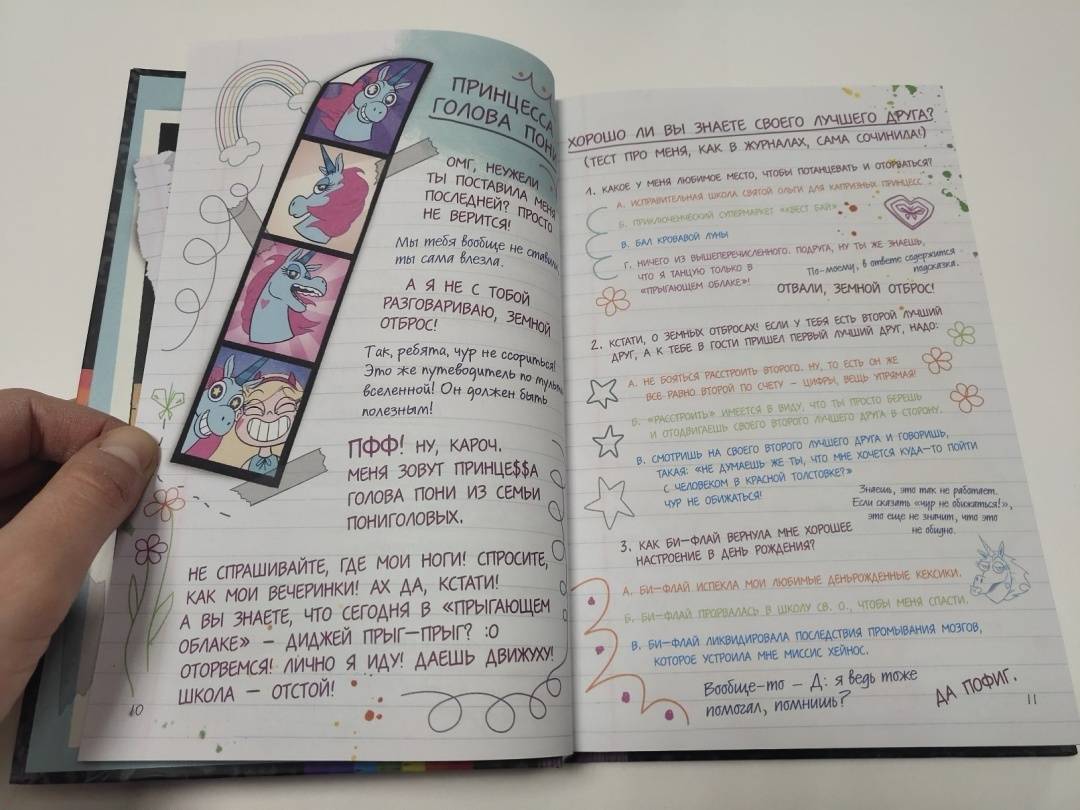 ПРИНЦЕССА
ГОЛОВА ПОНИ
ОМГ, НЕУЖЕЛИ
ТЫ ПОСТАВИЛА МЕНЯ
ПОСЛЕДНЕЙ? ПРОСТО
НЕ ВЕРИТСЯ!
Мы тебя вообще не ставили,
ты сама влезла.
А Я НЕ С ТОБОЙ
РАЗГОВАРИВАЮ, ЗЕМНОЙ
ОТБРОС!
Так, ребята, чур не ссориться!
Это же путеводитель по
вселенной! Он должен быть
полезным!
ПФФ! НУ, КАРОЧ.
МЕНЯ ЗОВУТ ПРИНЦЕ$$А
ГОЛОВА ПОНИ ИЗ СЕМЬИ
ПОНИГОЛОВЫХ.
НЕ СПРАШИВАЙТЕ, ГДЕ МОИ НОГИ! СПРОСИТЕ,
КАК МОИ ВЕЧЕРИНКИ! АХ ДА, КСТАТИ!
А ВЫ ЗНАЕТЕ, ЧТО СЕГОДНЯ В «ПРЫГАЮЩЕМ
ОБЛАКЕ» – ДИДЖЕЙ ПРЫГ–ПРЫГ? :О
ОТОРВЕМСЯ! ЛИЧНО Я ИДУ! ДАЕШЬ ДВИЖУХУ!
ШКОЛА – ОТСТОЙ!
10
ХОРОШО ЛИ ВЫ ЗНАЕТЕ СВОЕГО ЛУЧШЕГО ДРУГА?
(ТЕСТ ПРО МЕНЯ, КАК В ЖУРНАЛАХ, САМА СОЧИНИЛА!)
1. КАКОЕ У МЕНЯ ЛЮБИМОЕ МЕСТО, ЧТОБЫ ПОТАНЦЕВАТЬ И ОТОРВАТЬСЯ?
А. ИСПРАВИТЕЛЬНАЯ ШКОЛА СВЯТОЙ ОЛЬГИ ДЛЯ КАПРИЗНЫХ ПРИНЦЕСС
Б. ПРИКЛЮЧЕНЧЕСКИЙ СУПЕРМАРКЕТ «КВЕСТ БАЙ»
В. БАЛ КРОВАВОЙ ЛУНЫ
Г. НИЧЕГО ИЗ ВЫШЕПЕРЕЧИСЛЕННОГО. ПОДРУГА, НУ ТЫ ЖЕ ЗНАЕШЬ,
ЧТО Я ТАНЦУЮ ТОЛЬКО В
«ПРЫГАЮЩЕМ ОБЛАКЕ»!
По-моему, в ответе содержится
подсказка.
ОТВАЛИ, ЗЕМНОЙ ОТБРОС!
2. КСТАТИ, О ЗЕМНЫХ ОТБРОСАХ! ЕСЛИ У ТЕБЯ ЕСТЬ ВТОРОЙ ЛУЧШИЙ
ДРУГ, А К ТЕБЕ В ГОСТИ ПРИШЕЛ ПЕРВЫЙ ЛУЧШИЙ ДРУГ, НАДО:
А. НЕ БОЯТЬСЯ РАССТРОИТЬ ВТОРОГО. НУ, ТО ЕСТЬ ОН ЖЕ
ВСЕ РАВНО ВТОРОЙ ПО СЧЕТУ – ЦИФРЫ, ВЕЩЬ УПРЯМАЯ!
Б. «РАССТРОИТЬ» ИМЕЕТСЯ В ВИДУ, ЧТО ТЫ ПРОСТО БЕРЕШЬ
И ОТОДВИГАЕШЬ СВОЕГО ВТОРОГО ЛУЧШЕГО ДРУГА В СТОРОНУ.
В. СМОТРИШЬ НА СВОЕГО ВТОРОГО ЛУЧШЕГО ДРУГА И ГОВОРИШЬ,
ТАКАЯ: «НЕ ДУМАЕШЬ ЖЕ ТЫ, ЧТО МНЕ ХОЧЕТСЯ КУДА–ТО ПОЙТИ
С ЧЕЛОВЕКОМ В КРАСНОЙ ТОЛСТОВКЕ?»
ЧУР НЕ ОБИЖАТЬСЯ!
Знаешь, это так не работает.
Если сказать «чур не обижаться!»,
это еще не значит, что это
не обидно.
3. КАК БИ–ФЛАЙ ВЕРНУЛА МНЕ ХОРОШЕЕ
НАСТРОЕНИЕ В ДЕНЬ РОЖДЕНИЯ?
А. БИ–ФЛАЙ ИСПЕКЛА МОИ ЛЮБИМЫЕ ДЕНЬРОЖДЕННЫЕ КЕКСИКИ.
Б. БИ–ФЛАЙ ПРОРВАЛАСЬ В ШКОЛУ СВ. О., ЧТОБЫ МЕНЯ СПАСТИ.
В. БИ–ФЛАЙ ЛИКВИДИРОВАЛА ПОСЛЕДСТВИЯ ПРОМЫВАНИЯ МОЗГОВ,
КОТОРОЕ УСТРОИЛА МНЕ МИССИС ХЕЙНОС.
Вообще-то – Д: я ведь тоже
помогал, помнишь?
ДА ПОФИГ.
11